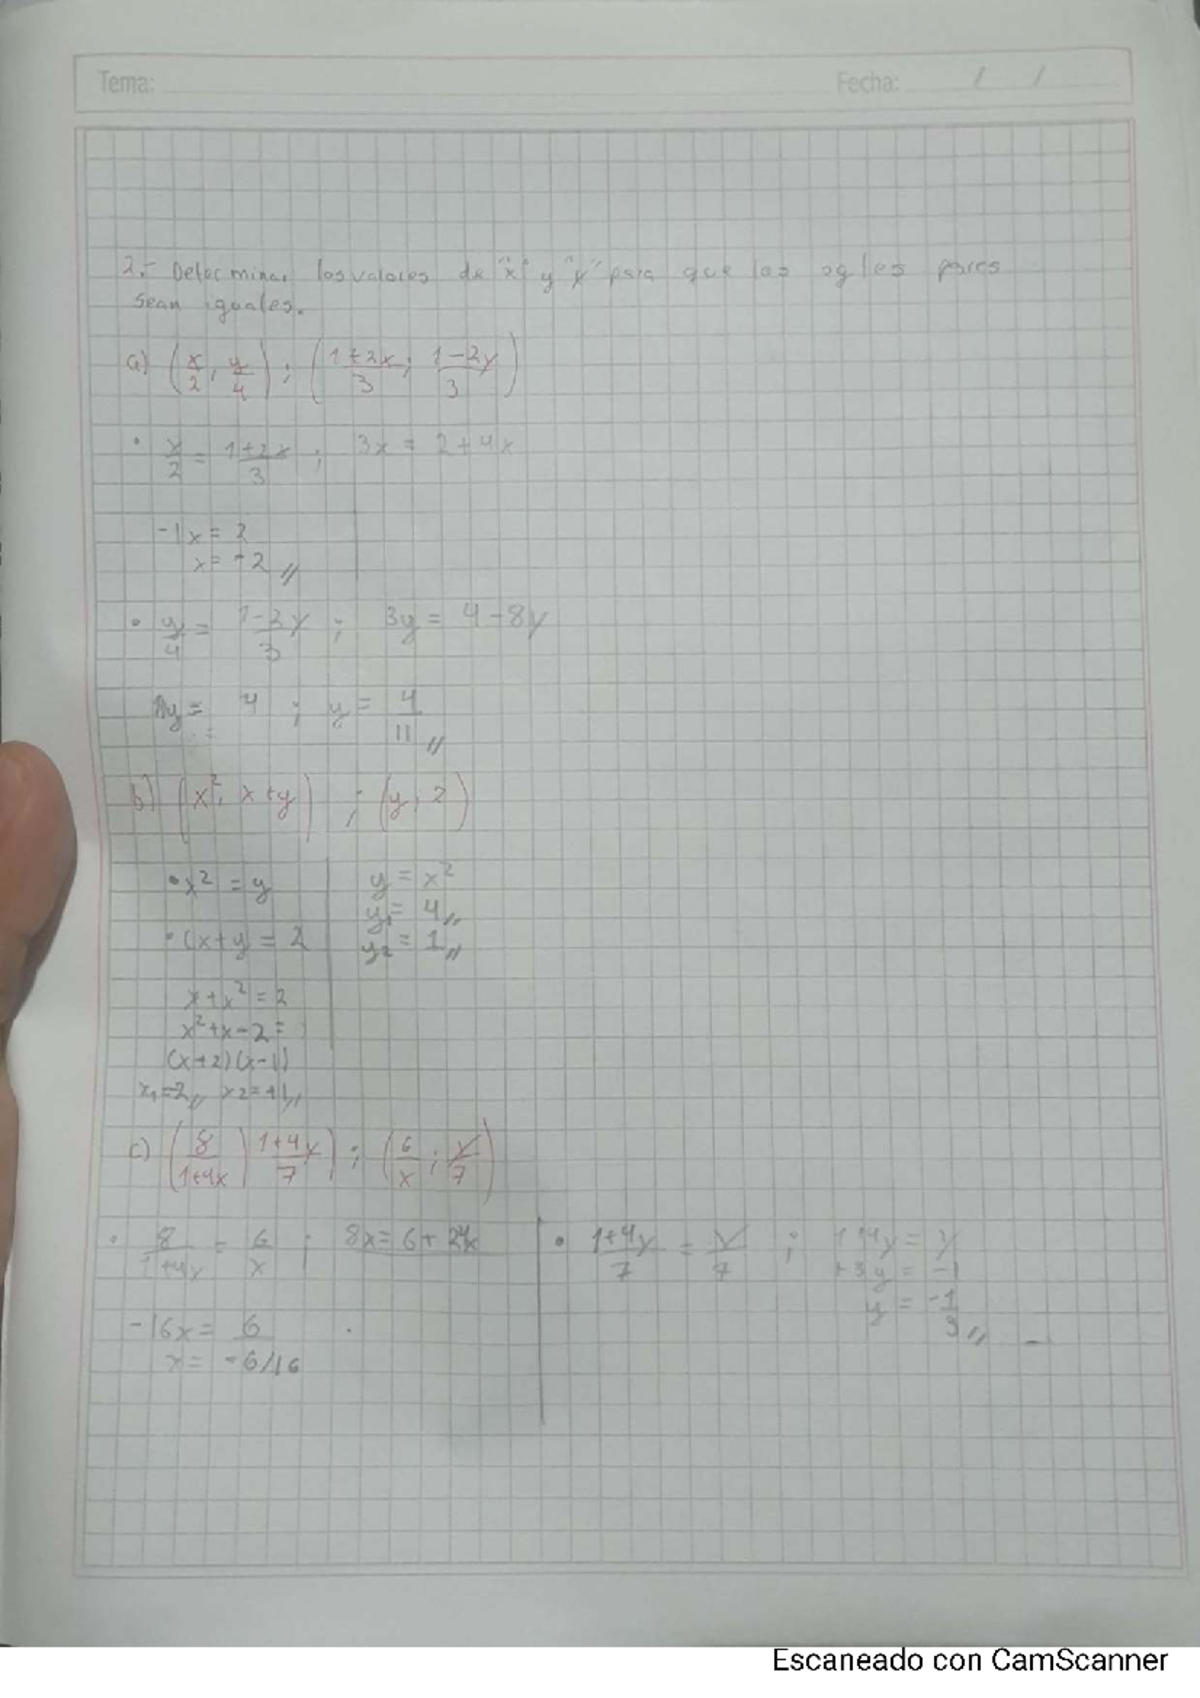 Tema: Fecha: / /
2.- Determinar los valores de "x" y "y" para que los pares
sean iguales.
a) (x/2, y/4) ; (1+2x/3; 1-2y/3)
• x/2 = 1+2x/3 ; 3x = 2+4x
-1x = 2
x = -2 //
• y/4 = 1-2y/3 ; 3y = 4-8y
11y = 4 ; y = 4/11 //
b) (x², x+y) ; (y, 2)
• x² = y
• (x+y) = 2
x+x² = 2
x²+x-2 =
(x+2)(x-1)
x₁=-2// x2=+1//
y = x²
y₁= 4//
y₂ = 1//
c) (8/1+4x) 1+4y/7) ; (6/x ; y/7)
• 8/1+4x = 6/x ; 8x = 6+24x
-16x = 6
x = -6/16
• 1+4y/7 = y/7 ; 1+4y = y
+3y = -1
y = -1/3 //
Escaneado con CamScanner